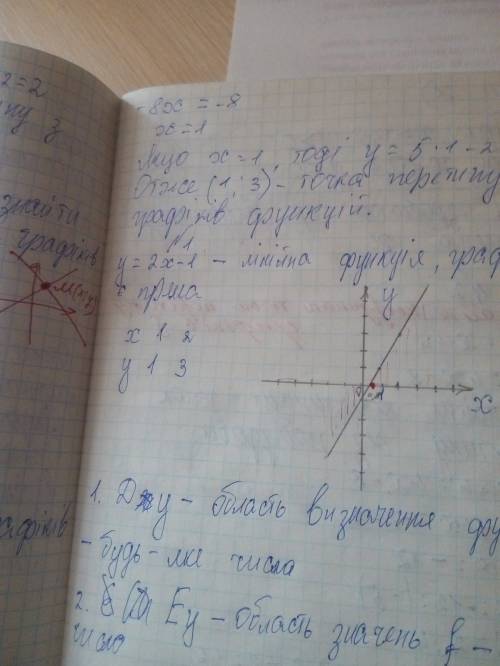 2=2
-8x = -8
x=1
Якщо x=1, тоді y=5·1-2
Отже (1; 3) - точка перетину
графіків функцій.
знайти
графіків
M(x;y)
№1
y=2x-1 - лінійна функція, граф
пряма
x 1 2
y 1 3
y
x
1. Dy - область визначення фу
- будь-яке число
2. Ey - область значень f -
число